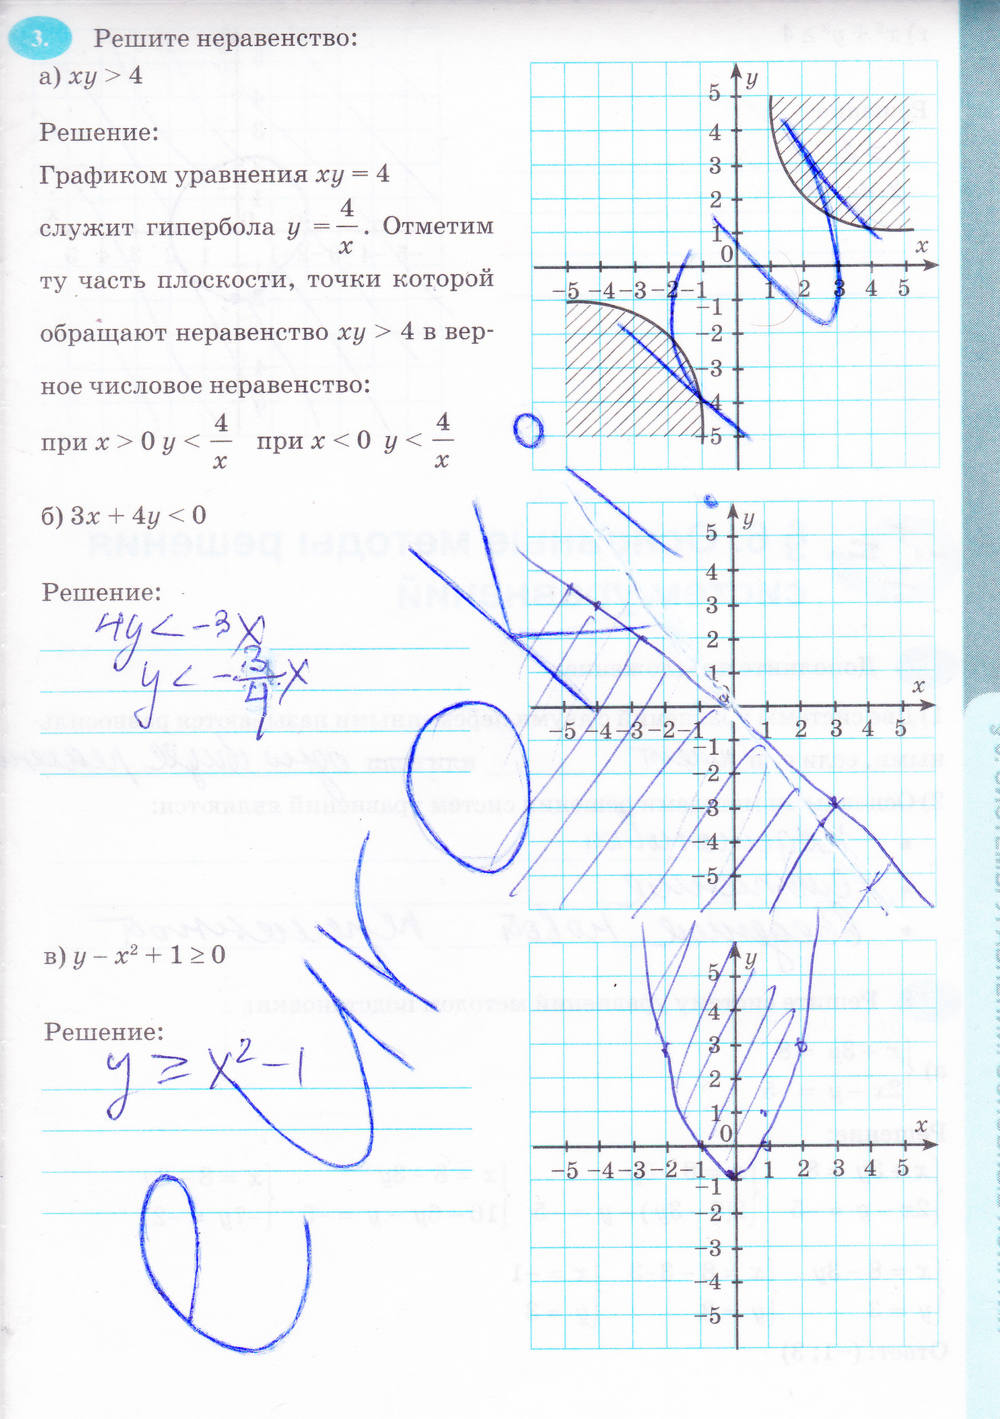 3. Решите неравенство:
а) xy > 4
Решение:
Графиком уравнения xy = 4
служит гипербола y = 4/x. Отметим
ту часть плоскости, точки которой
обращают неравенство xy > 4 в вер-
ное числовое неравенство:
при x > 0 y < 4/x при x < 0 y < 4/x
y
5
4
3
2
1
0
x
-5 -4 -3 -2 -1 1 2 3 4 5
-1
-2
-3
-4
-5
б) 3x + 4y < 0
Решение:
4y < -3x
y < -3/4 x
y
5
4
3
2
1
x
-5 -4 -3 -2 -1 1 2 3 4 5
-1
-2
-3
-4
-5
в) y – x² + 1 ≥ 0
Решение:
y ≥ x² - 1
y
5
4
3
2
1
0
x
-5 -4 -3 -2 -1 1 2 3 4 5
-1
-2
-3
-4
-5